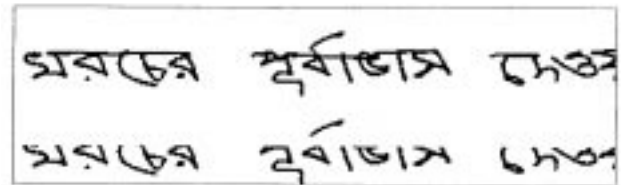 খরচের পূর্বাভাস দেওয়
খরচের পূর্বাভাস দেওয